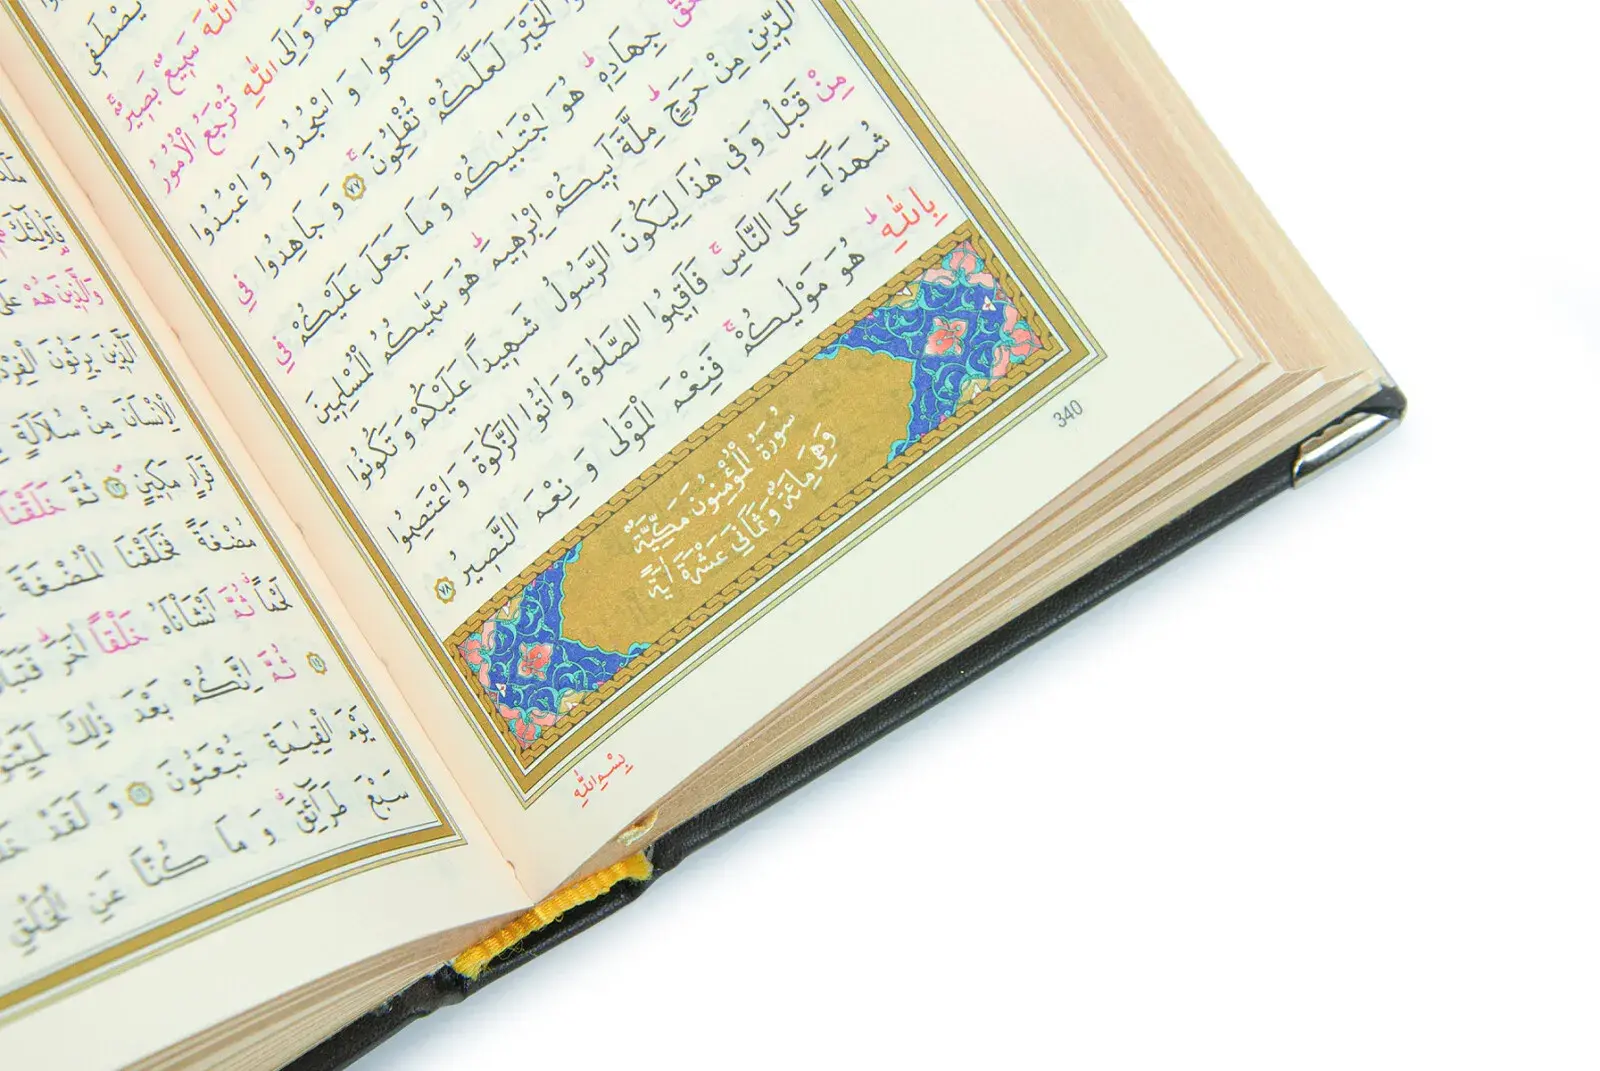 يَصْطَفٖي
اللّٰهَ سَمٖيعٌ بَصٖيرٌ
وَاِلَى اللّٰهِ تُرْجَعُ الْاُمُورُ
ارْكَعُوا وَاسْجُدُوا وَاعْبُدُوا
الْخَيْرَ لَعَلَّكُمْ تُفْلِحُونَ ٧٧ وَجَاهِدُوا فِي
حَقَّ جِهَادِهٖ هُوَ اجْتَبٰيكُمْ وَمَا جَعَلَ عَلَيْكُمْ فِي
الدّٖينِ مِنْ حَرَجٍ مِلَّةَ اَبٖيكُمْ اِبْرٰهٖيمَ هُوَ سَمّٰيكُمُ الْمُسْلِمٖينَ
مِنْ قَبْلُ وَفٖي هٰذَا لِيَكُونَ الرَّسُولُ شَهٖيدًا عَلَيْكُمْ وَتَكُونُوا
شُهَدَٓاءَ عَلَى النَّاسِ فَاَقٖيمُوا الصَّلٰوةَ وَاٰتُوا الزَّكٰوةَ وَاعْتَصِمُوا
بِاللّٰهِ هُوَ مَوْلٰيكُمْ فَنِعْمَ الْمَوْلٰى وَنِعْمَ النَّصٖيرُ ٧٨
سُورَةُ الْمُؤْمِنُونَ مَكِّيَّةٌ
وَهِيَ مِائَةٌ وَثَمَانِيَ عَشْرَةَ اٰيَةً
340
بِسْمِ اللّٰهِ
فَاُولٰٓئِكَ
وَالَّذٖينَ هُمْ
الَّذٖينَ يَرِثُونَ
الْاِنْسَانَ مِنْ سُلَالَةٍ
قَرَارٍ مَكٖينٍ ١٣ ثُمَّ خَلَقْنَا
مُضْغَةً فَخَلَقْنَا الْمُضْغَةَ
لَحْمًا ثُمَّ اَنْشَأْنَاهُ خَلْقًا اٰخَرَ
ثُمَّ اِنَّكُمْ بَعْدَ ذٰلِكَ
يَوْمَ الْقِيٰمَةِ تُبْعَثُونَ ١٦ وَلَقَدْ
سَبْعَ طَرَٓائِقَ وَمَا كُنَّا عَنِ الْخَلْقِ